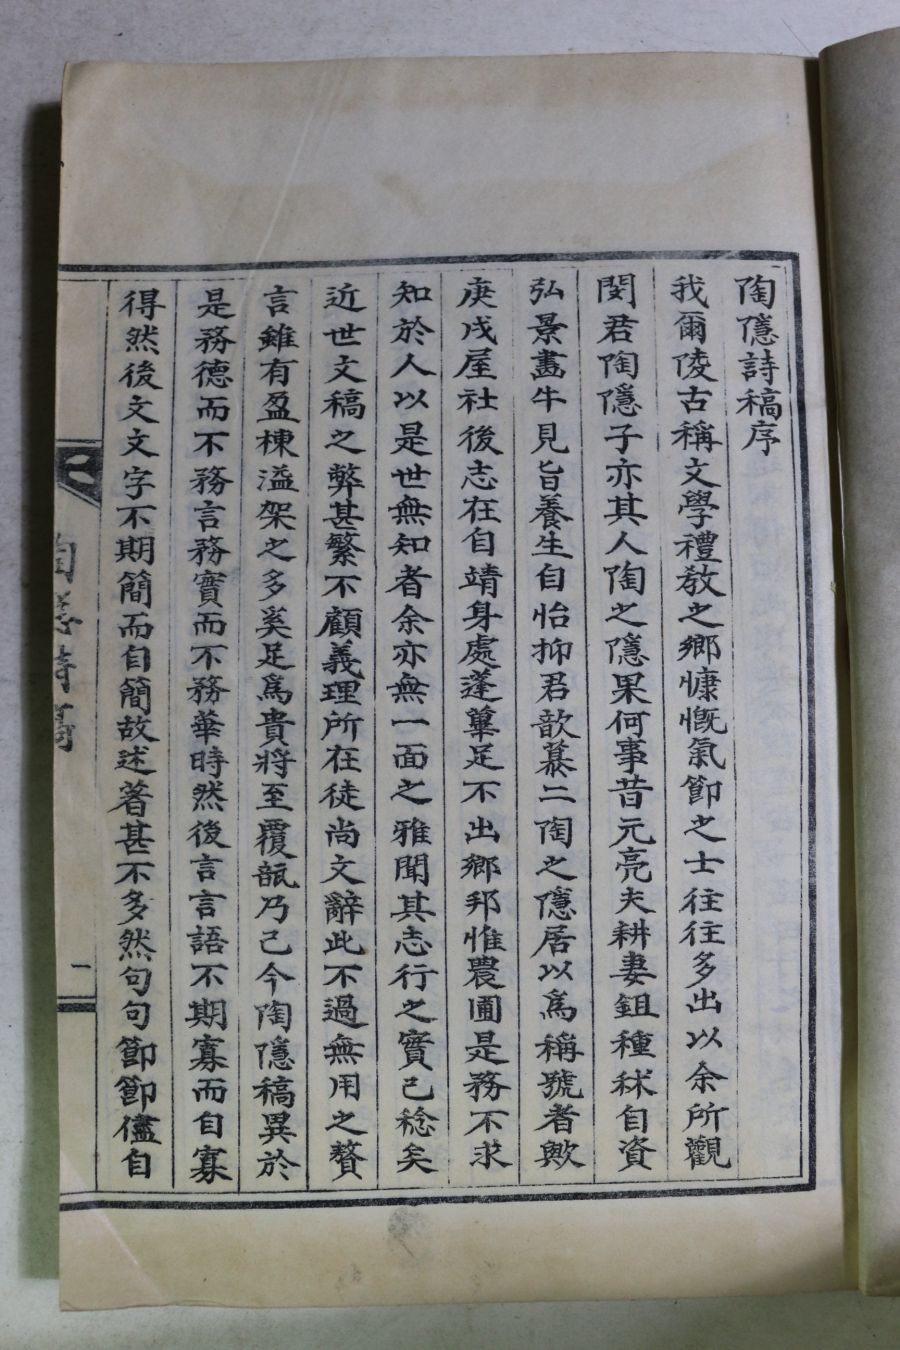 陶隱詩稿序
我爾陵古稱文學禮敎之鄉慷慨氣節之士往往多出以余所觀
閔君陶隱子亦其人陶之隱果何事昔元亮夫耕妻鉏種秫自資
弘景畫牛見旨養生自怡抑君歆慕二陶之隱居以爲稱號者歟
庚戌屋社後志在自靖身處蓬蓽足不出鄉邦惟農圃是務不求
知於人以是世無知者余亦無一面之雅聞其志行之實已稔矣
近世文稿之弊甚繁不顧義理所在徒尚文辭此不過無用之贅
言雖有盈棟溢架之多奚足爲貴將至覆瓿乃已今陶隱稿異於
是務德而不務言務實而不務華時然後言言語不期寡而自寡
得然後文文字不期簡而自簡故述著甚不多然句句節節儘自
陶隱詩稿
一